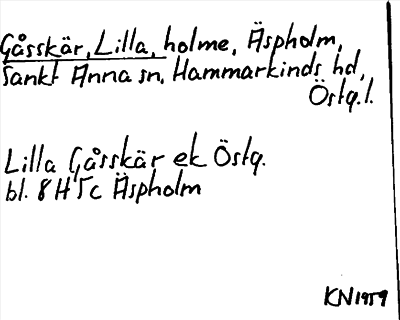 Gåsskär, Lilla, holme, Äspholm,
Sankt Anna sn, Hammarkinds hd,
Östg.l.
Lilla Gåsskär ek Östg.
bl. 8H5c Äspholm
KN1959